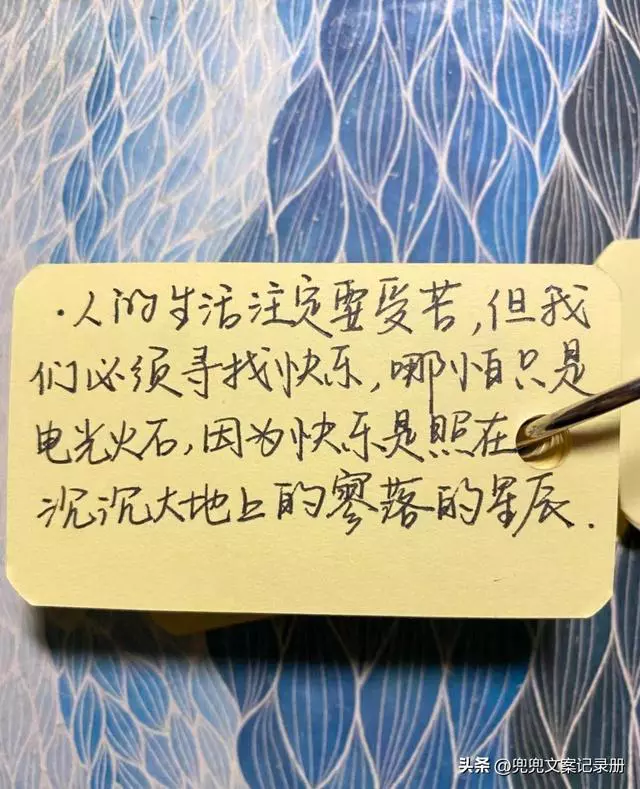 ·人的生活注定要受苦,但我
们必须寻找快乐,哪怕只是
电光火石,因为快乐是照在
沉沉大地上的寥落的星辰.
头条 @兜兜文案记录册